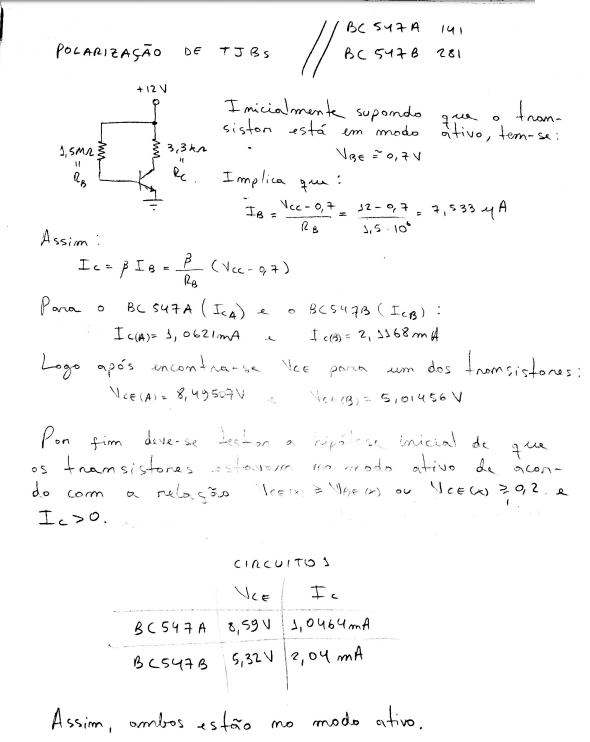 // BC547A 141
POLARIZAÇÃO DE TJBs BC547B 281
+12V
Inicialmente supondo que o tran-
sistor está em modo ativo, tem-se:
1,5MΩ
"
RB
3,3kΩ
"
RC
VBE ≅ 0,7V
Implica que:
IB = (VCC-0,7)/RB = (12-0,7)/(1,5·10⁶) = 7,533 μA
Assim:
IC = β IB = β/RB (VCC-0,7)
Para o BC547A (ICA) e o BC547B (ICB):
IC(A)= 1,0621mA e IC(B)= 2,1168mA
Logo após encontra-se VCE para um dos transistores:
VCE(A)= 8,49507V e VCE(B)= 5,01456V
Por fim deve-se testar a hipótese inicial de que
os transistores estavam no modo ativo de acor-
do com a relação VCE(x) ≥ VBE(x) ou VCE(x) ≥ 0,2 e
IC>0.
CIRCUITO 1
VCE IC
BC547A 8,59V 1,0464mA
BC547B 5,32V 2,04 mA
Assim, ambos estão no modo ativo.